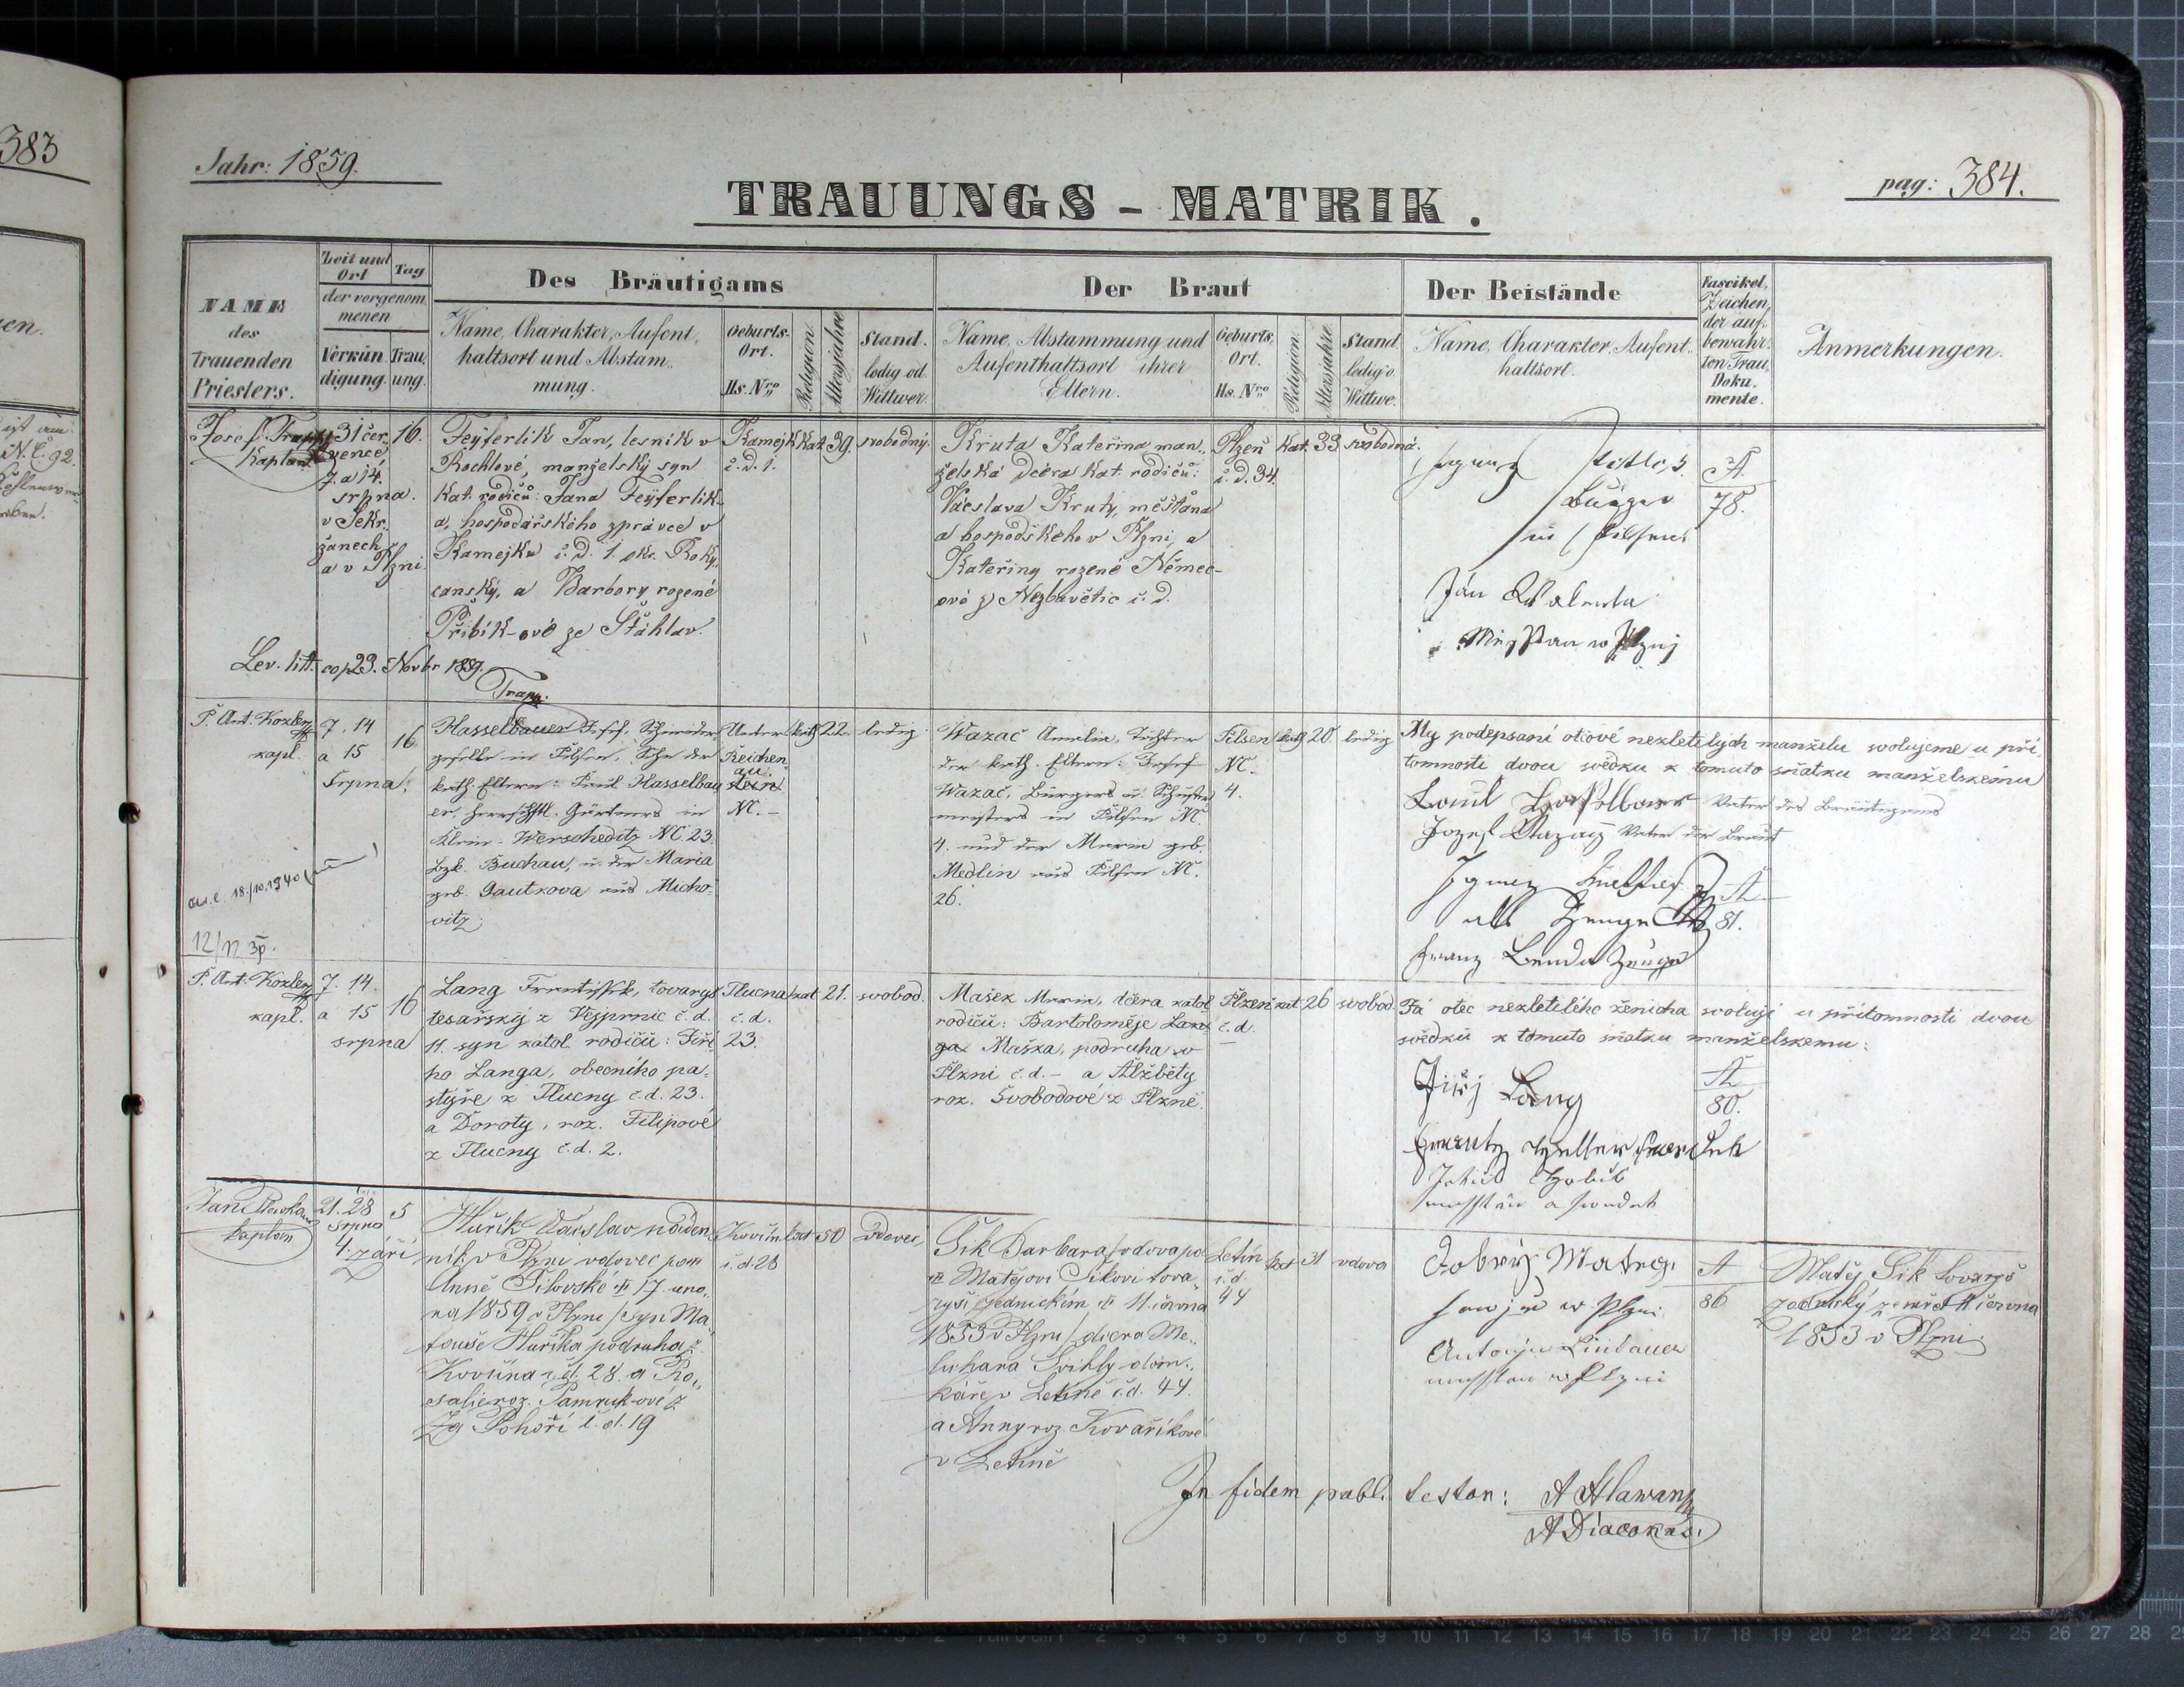 383
Jahr: 1859.
pag: 384.
TRAUUNGS - MATRIK.
NAME
des
Trauenden
Priesters.
Zeit und
Ort
Tag
der vorgenom
menen
Verkün
digung.
Trau,
ung.
Des Bräutigams
Name, Charakter, Aufent,
haltsort und Abstam,
mung.
Geburts-
Ort.
Hs. Nro
Religion.
Altersjahre
Stand.
ledig od.
Wittwer.
Der Braut
Name, Abstammung und
Aufenthaltsort ihrer
Eltern.
Geburts,
Ort.
Hs. Nro
Religion.
Altersjahre.
Stand
ledig o.
Wittwe.
Der Beistände
Name, Charakter, Aufent,
haltsort.
Fascikel,
Zeichen,
der auf,
bewahr,
ten Trau,
Doku,
mente.
Anmerkungen.
Josef
Kaplan
31 čer.
vence
7. a 14.
srpna.
v Sekr.
žanech
a v Plzni.
16.
Feyferlik Jan, lesník v
Rochlové, manželský syn
kat. rodičů: Jana Feyferlik-
a, hospodářského zprávce v
Kamejku č. d. 1. okr. Roky,
canský, a Barbory rozené
Přibík-ové ze Šťáhlav.
Kamejk
č. d. 1.
kat
39.
svobodný.
Kruta Kateřina man,
želská dcera kat. rodičů:
Václava Kruty, měšťana
a hospodského v Plzni, a
Kateřiny rozené Němec-
ové z Nezbavětic č. d.
Plzeň
č. d. 34.
kat.
33
svobodná.
Bürger
in Pilsen
Jan Walenta
A
78.
Lev. litt. cop. 23. Novbr 1859.
Trapp.
P. Ant. Kozler
kapl.
7. 14
a 15
Srpna.
16
Hasselbauer Josef, Schneider
geselle in Pilsen, Sohn der
kath. Eltern: Paul Hasselbau
er, herrschftl. Gärtners in
Klein-Werscheditz NC. 23.
Bzk. Buchau, u. der Maria
geb. Gautkova aus Micho-
vitz
Unter
Reichen
au.
NC. -
kath
22.
ledig
Wazač Amalia, Tochter
der kath. Eltern: Josef
Wazač, Bürgers u. Schuhm
meisters in Pilsen NC
4. und der Maria geb.
Medlin aus Pilsen NC.
26.
Pilsen
NC.
4.
kath
20
ledig
My podepsaní otcové nezletilých manželu svolujeme u pří,
tomnosti dvou svědku k tomuto sňatku manželskému
Paul Hasselbauer Vater des Bräutigams
Josef Wazač Vater der Braut
Ignaz
als Zeuge
Franz Benda Zeuge
A
81.
18./10.1940
12/12 3p.
P. Ant. Kozler
kapl.
7. 14.
a 15
srpna
16
Lang František, tovaryš
tesařský z Vejprnic č. d.
11. syn katol. rodičů: Jiří
ho Langa, obecního pa-
stýře z Tlucny č.d. 23.
a Doroty, roz. Filipové
z Tlucny č.d. 2.
Tlucna
č. d.
23.
kat
21.
svobod.
Mašek Marie, dcera katol
rodičů: Bartoloměje Lan
ga Maška, podruha v
Plzni č.d. - a Alžběty
roz. Svobodové z Plzně.
Plzeň
č. d.
kat
26
svobod.
Já otec nezletilého ženicha svoluji u přítomnosti dvou
svědků k tomuto sňatku manželskemu:
Jiřj Lang
A
80.
Jan
kaplan
21. 28
srpna
4. září
5
Huřík Václav, náden,
ník v Plzni vdovec po
Anně Šilovské 17. úno,
ra 1859 v Plzni / syn Ma,
touše Huříka podruha z
Kovčína č.d. 28. a Ro,
salie roz. Pamruk-ové z
Pohoří č. d. 19
Kovčín
č. d. 28
kat
50
vdovec
Šik Barbara / vdova po
Matějovi Šikovi tova,
ryši zednickém 11. června
1853 v Plzni / dcera Me,
luhara Švihly dom,
káře v Letině č.d. 44.
a Anny roz. Kovaříkové
v Letině
Letin
č. d.
44
kat
31
vdova
w Plzni
Antonjn Lindauer
A
86
Matěj Šik tovaryš
zednický zemřel 11 června
1853 v Plzni
In fidem publ. testor: A Hlawan
A Diaconus.